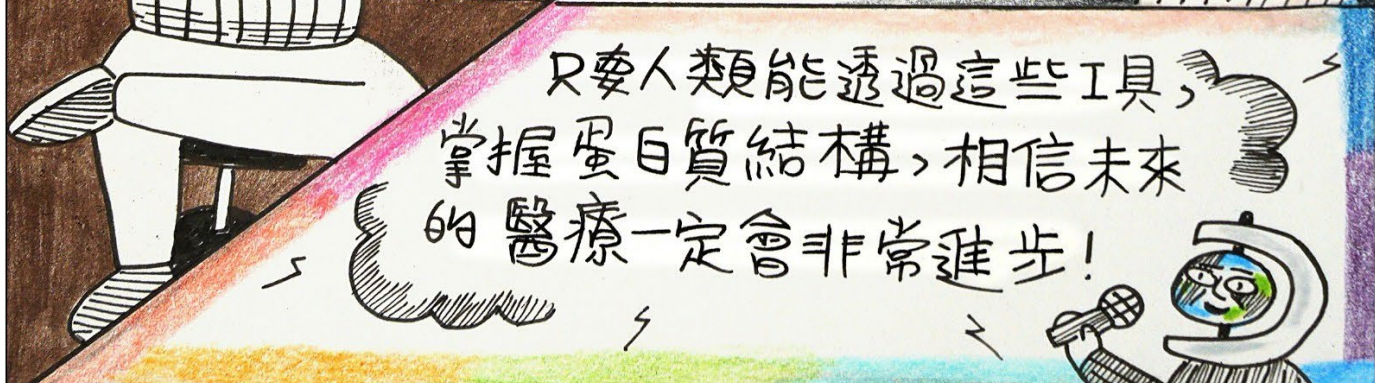 只要人類能透過這些工具，
掌握蛋白質結構，相信未來
的醫療一定會非常進步！